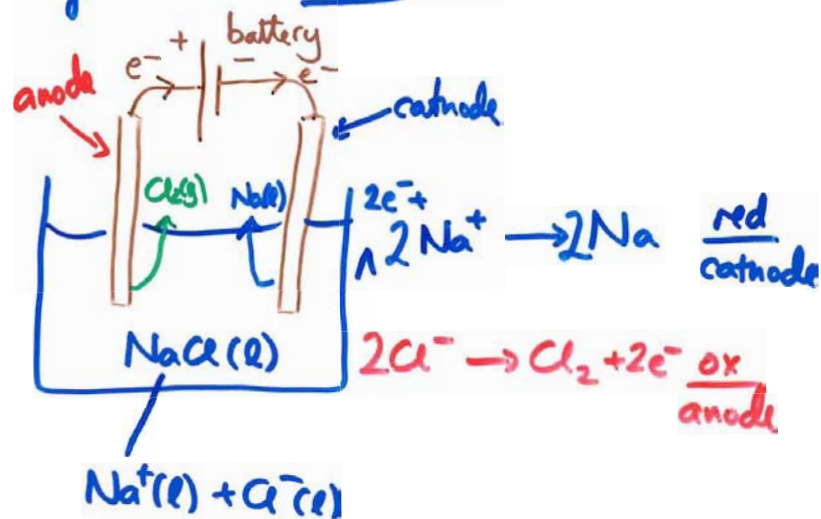 battery
e⁻ + − e⁻
anode
cathode
Cl₂(g) Na(l)
2e⁻+
∧ 2Na⁺ → 2Na red
cathode
NaCl(l)
2Cl⁻ → Cl₂ + 2e⁻ ox
anode
Na⁺(l) + Cl⁻(l)